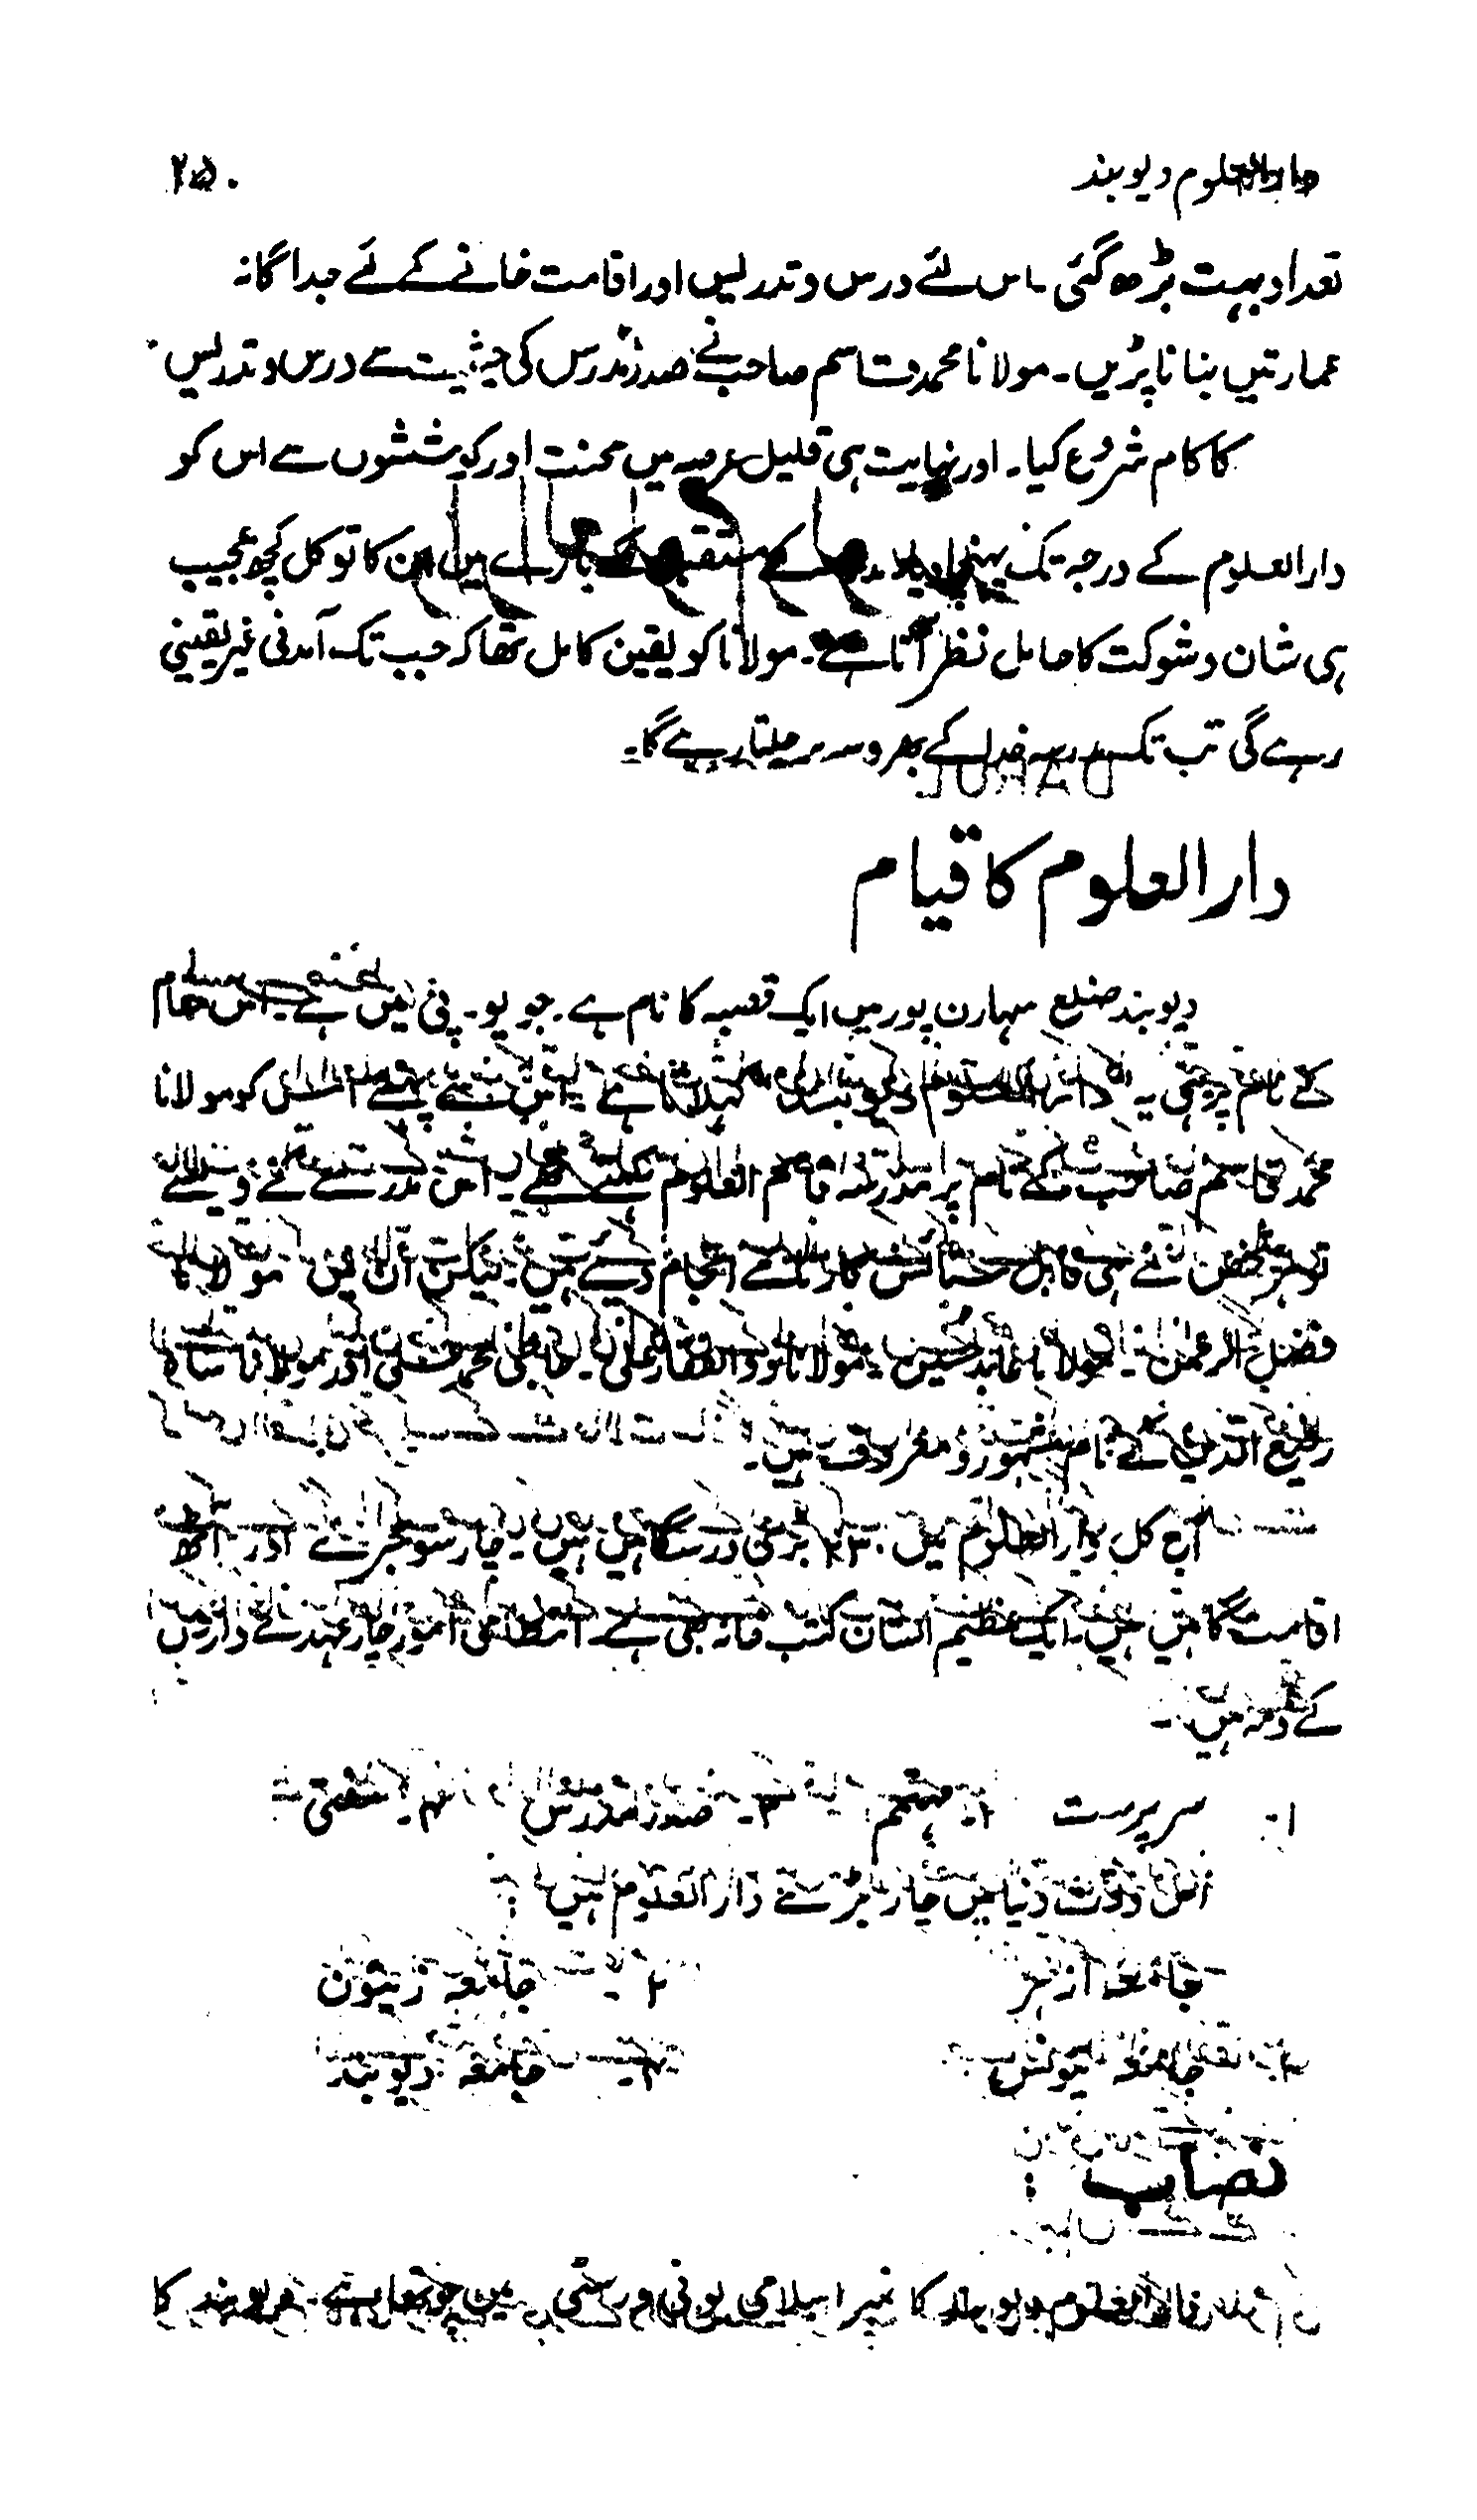 دارالعلوم دیوبند ۲۵۰
تعداد بہت بڑھ گئی ۔ اس لئے درس و تدریس اور اقامت خانے کے لئے جداگانہ
عمارتیں بنانا پڑیں ۔ مولانا محمد قاسم صاحب نے صدر مدرس کی حیثیت سے درس و تدریس
کا کام شروع کیا ۔ اور نہایت ہی قلیل عرصہ میں محنت اور کوششوں سے اس کو
دارالعلوم کے درجہ تک پہنچا دیا کے بارے میں ان کا توکل کچھ عجیب
ہی شان و شوکت کا حامل نظر آتا ہے ۔ مولانا کو یقین کامل تھا کہ جب تک آمدنی غیر یقینی
رہے گی تب تک مدرسہ خدا کے بھروسہ پر چلتا رہے گا ۔
دارالعلوم کا قیام
دیوبند ضلع سہارن پور میں ایک قصبہ کا نام ہے ۔ جو یو ۔ پی میں ہے ۔ اس مقام
کے نام پر ہی یہ دارالعلوم دیوبند کہلاتا ہے ۔ اس سے پہلے اس کو مولانا
محمد قاسم صاحب کے نام پر مدرسہ قاسم العلوم کہتے تھے ۔ اس مدرسے کے لئے
تو ہر شخص نے ہی قابل ستائش کارنامے انجام دیئے ہیں ۔ لیکن ان میں مولانا
فضل الرحمن ۔ مولانا عابد حسین ۔ مولانا ذوالفقار علی ۔ حاجی محمد اور مولانا شاہ
رفیع الدین کے نام مشہور و معروف ہیں ۔
آج کل دارالعلوم میں بڑی درسگاہیں ہیں ۔ چار سو حجرے اور آٹھ
اقامت گاہیں ہیں ۔ ایک عظیم الشان کتب خانہ بھی ہے ۔ انتظامی امور چار عہدے داروں
کے ذمہ ہیں ۔
۱۔ سرپرست ۲۔ مہتمم ۳۔ صدر مدرس ۴۔ مفتی
اس وقت دنیا میں چار بڑے دارالعلوم ہیں :
جامعہ ازہر ۲۔ جامعہ زیتون
۳۔ جامعہ تیونس ۴۔ جامعہ دیوبند
نصاب :
دارالعلوم دیوبند کا نمبر اسلامی یونیورسٹی میں چوتھا ہے ۔ دیوبند کا